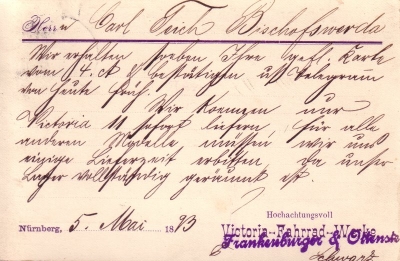 Herrn Carl Teich Bischofswerda
Wir erhalten soeben Ihre gefl. Karte
vom 4. ct & bestätigen Telegram
von heute früh.
Wir koennen nur
Victoria 11 sofort liefern, für alle
anderen Modelle müssen wir uns
einige Lieferzeit erbitten, da unser
Lager vollständig geräumt ist.
Hochachtungsvoll
Nürnberg, 5. Mai 1893
Victoria-Fahrrad-Werke
Frankenburger & Ottenstein